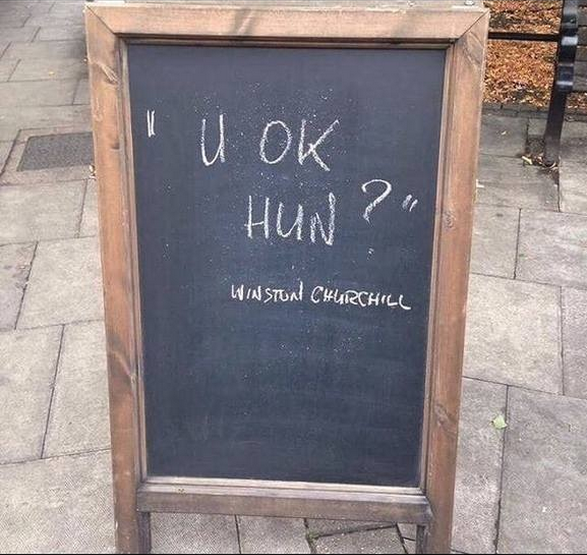 "U OK
HUN?"
WINSTON CHURCHILL